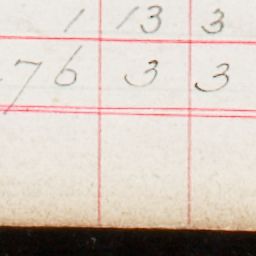 1 13 3
76 3 3